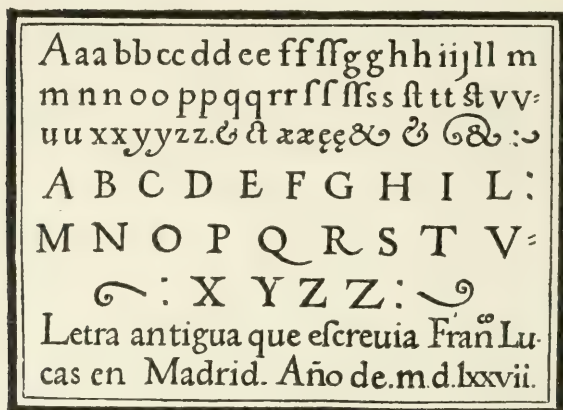 A a a b b c c d d e e f f ſſ g g h h i i j l l m
m n n o o p p q q r r ſ ſ ſſ s s ſt t t ſt v v:
u u x x y y z z . & ct æ æ ę ę & & & :
A B C D E F G H I L :
M N O P Q R S T V :
: X Y Z Z :
Letra antigua que eſcreuia Franᶜᵒ Lu-
cas en Madrid. Año de.m.d.lxxvii.